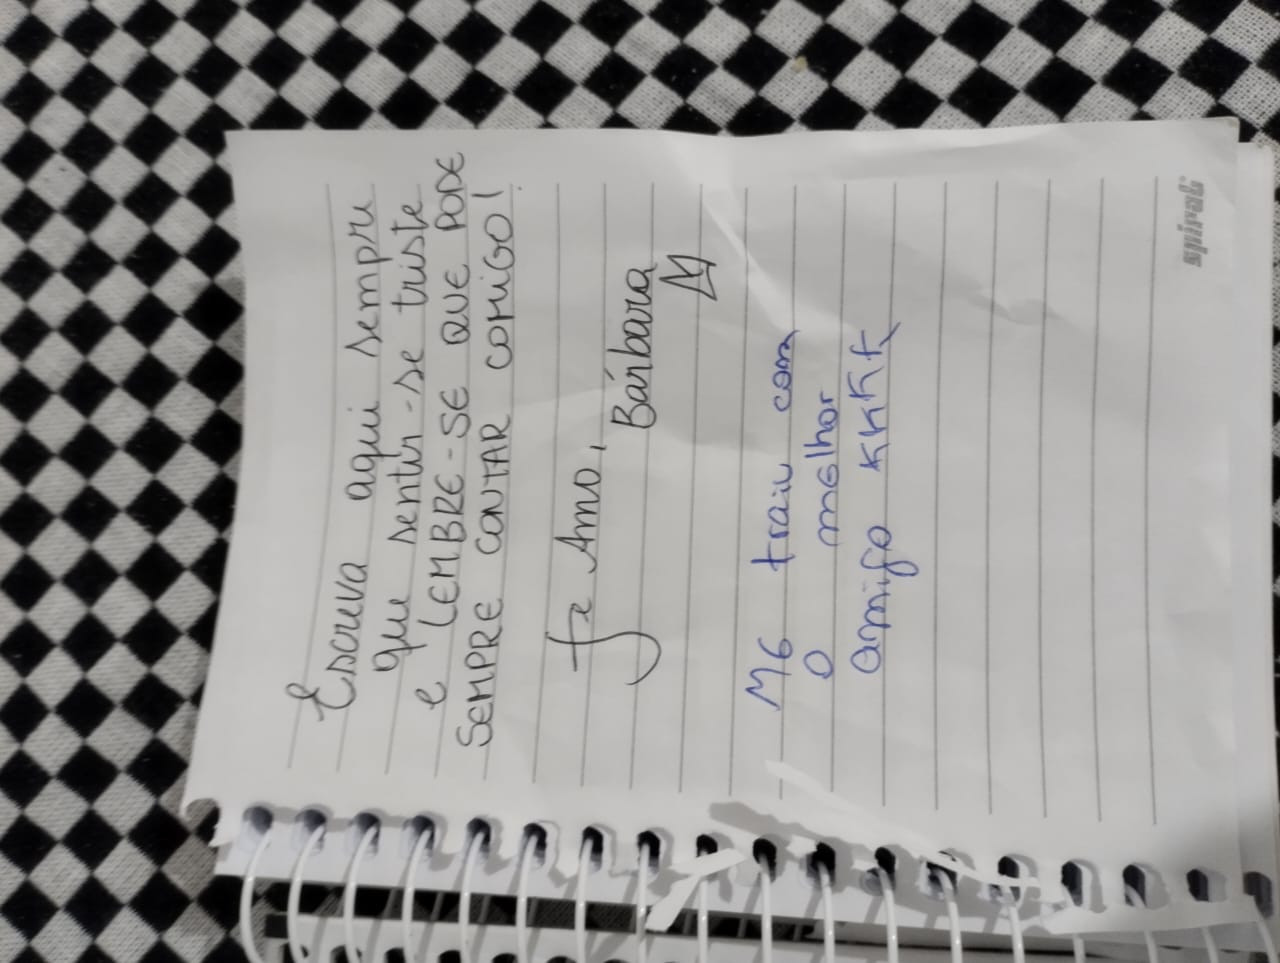 Escreva aqui sempre
que sentir-se triste
e LEMBRE-SE QUE PODE
SEMPRE CONTAR COMIGO!
Te Amo,
Bárbara
M6 traiu com
O melhor
amigo KKKK
spiral